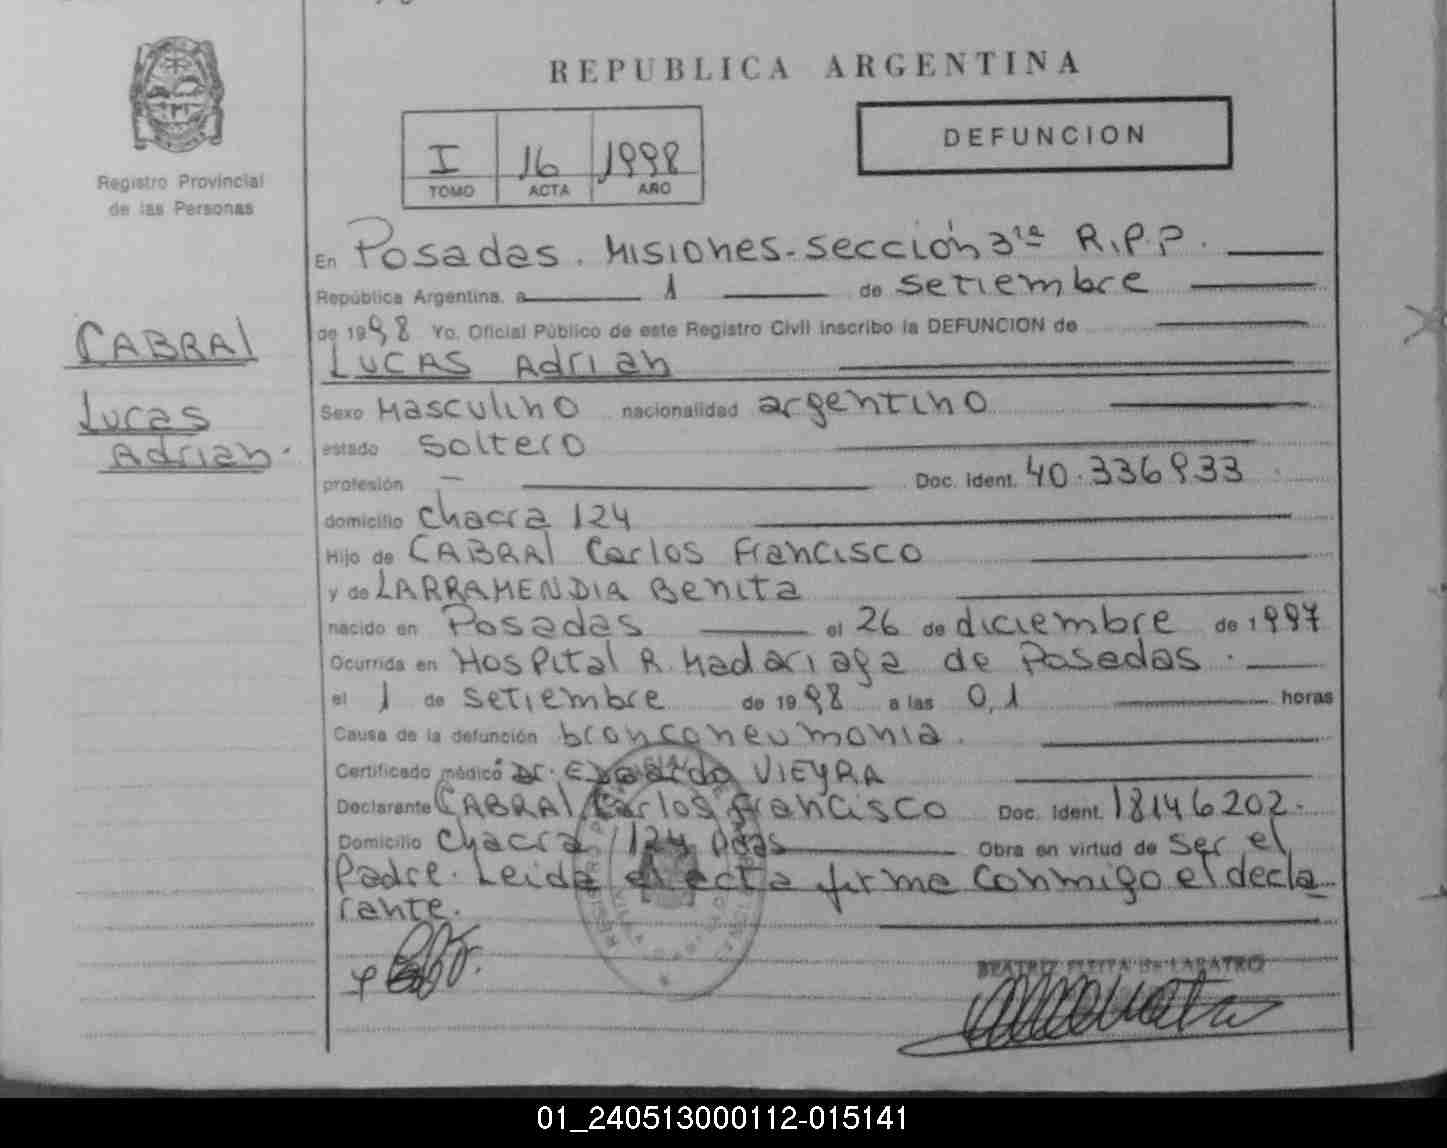 REPUBLICA ARGENTINA
Registro Provincial
de las Personas
I 16 1998
TOMO ACTA AÑO
DEFUNCION
CABRAL
Lucas
Adrian.
En Posadas. Misiones-sección 3ra R.P.P.
República Argentina, a 1 de setiembre
de 1998 Yo, Oficial Público de este Registro Civil inscribo la DEFUNCION de
LUCAS Adrian
Sexo Masculino nacionalidad argentino
estado soltero
profesión — Doc. Ident. 40.336933
domicilio chacra 124
Hijo de CABRAL Carlos Francisco
y de LARRAMENDIA Benita
nacido en Posadas el 26 de diciembre de 1997
Ocurrida en Hospital R. Madariaga de Posadas.
el 1 de setiembre de 1998 a las 0,1 horas
Causa de la defunción bronconeumonia.
Certificado médico Dr. Eduardo VIEYRA
Declarante CABRAL Carlos Francisco Doc. Ident. 18146202.
Domicilio chacra 124 Pdas Obra en virtud de ser el
Padre. Leida el acta firma conmigo el decla
rante.
BEATRIZ de LABATRO
01_240513000112-015141